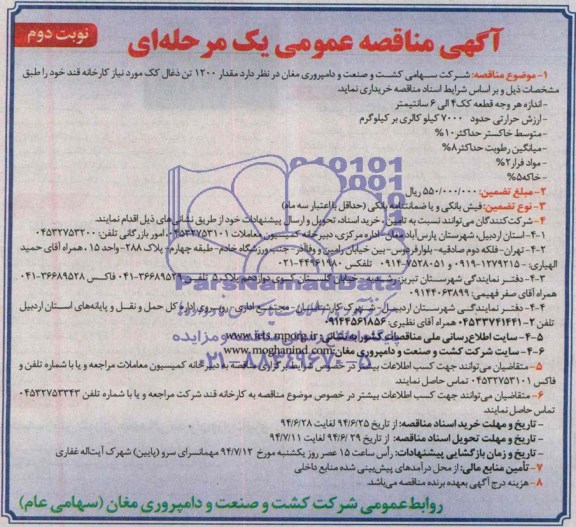 نوبت دوم
آگهی مناقصه عمومی یک مرحله‌ای
۱- موضوع مناقصه: شرکت سهامی کشت و صنعت و دامپروری مغان در نظر دارد مقدار ۱۲۰۰ تن ذغال کک مورد نیاز کارخانه قند خود را طبق
مشخصات ذیل و بر اساس شرایط اسناد مناقصه خریداری نماید.
-اندازه هر وجه قطعه کک ۴ الی ۶ سانتیمتر
-ارزش حرارتی حدود ۷۰۰۰ کیلو کالری بر کیلوگرم
-متوسط خاکستر حداکثر ۱۰%
-میانگین رطوبت حداکثر ۸%
-مواد فرار ۲%
-خاکه ۵%
۲- مبلغ تضمین: ۵۵۰/۰۰۰/۰۰۰ ریال
۳- نوع تضمین: فیش بانکی و یا ضمانتنامه بانکی (حداقل با اعتبار سه ماه)
۴- شرکت کنندگان می‌توانند نسبت به تامین، خرید اسناد، تحویل و ارسال پیشنهادات خود از طریق نشانی‌های ذیل اقدام نمایند.
۴-۱- استان اردبیل، شهرستان پارس‌آباد مغان- اداره مرکزی، دبیرخانه کمیسیون معاملات ۰۴۵۳۲۷۵۳۱۰۱ امور بازرگانی تلفن: ۰۴۵۳۲۷۵۳۲۰۰
۴-۲- تهران-فلکه دوم صادقیه- بلوار فردوس-بین خیابان رامین و وفاآذر- جنب ورزشگاه خادم- طبقه چهارم- پلاک ۲۸۸-واحد ۱۵، همراه آقای حمید
الهیاری: ۰۹۱۹۰۱۲۷۹۲۱۵ و ۰۹۱۴۰۷۵۲۸۰۵۱ تلفکس ۴۴۹۶۱۹۸۰-۰۲۱
۴-۳- دفتر نمایندگی شهرستان تبریز: رشدیه- خیابان گلستان کوی دوازدهم پلاک ۵ تلفن ۳۶۶۸۹۵۲۹-۰۴۱ فاکس ۳۶۶۸۹۵۲۸-۰۴۱
همراه آقای صفر فهیمی: ۰۹۱۴۴۰۶۳۸۹۹
۴-۴- دفتر نمایندگی شهرستان اردبیل: شهرک کارشناسان- مجتمع اداری- روبروی اداره کل حمل و نقل و پایانه‌های استان اردبیل
تلفن ۲-۰۴۵۳۳۷۴۱۴۴۱ همراه آقای نظیری: ۰۹۱۴۴۵۶۱۸۵۶
۴-۵- سایت اطلاع‌رسانی ملی مناقصات کشور به نشانی: www.iets.mporg.ir
۴-۶- سایت شرکت کشت و صنعت و دامپروری مغان: www.moghanind.com
۵- متقاضیان می‌توانند جهت کسب اطلاعات بیشتر در خصوص شرایط برگزاری مناقصه به دبیرخانه کمیسیون معاملات مراجعه و یا با شماره تلفن و
فاکس ۰۴۵۳۲۷۵۳۱۰۱ تماس حاصل نمایند.
۶- متقاضیان می‌توانند جهت کسب اطلاعات بیشتر در خصوص موضوع مناقصه به کارخانه قند شرکت مراجعه و یا با شماره تلفن ۰۴۵۳۲۷۵۳۳۴۳
تماس حاصل نمایند.
- تاریخ و مهلت خرید اسناد مناقصه: از تاریخ ۹۴/۶/۲۵ لغایت ۹۴/۶/۲۸
- تاریخ و مهلت تحویل اسناد مناقصه: از تاریخ ۹۴/۶/۲۹ لغایت ۹۴/۷/۱۱
- تاریخ و زمان بازگشایی پیشنهادات: رأس ساعت ۱۵ عصر روز یکشنبه مورخ ۹۴/۷/۱۲ مهمانسرای سرو (پایین) شهرک آیت‌اله غفاری
۷- تأمین منابع مالی: از محل درآمدهای پیش‌بینی شده منابع داخلی
۸- هزینه درج آگهی بعهده برنده مناقصه می‌باشد.
روابط عمومی شرکت کشت و صنعت و دامپروری مغان (سهامی عام)
ParsNamadData
۰۲۱-۸۸۳۴۹۶۷۰-۵